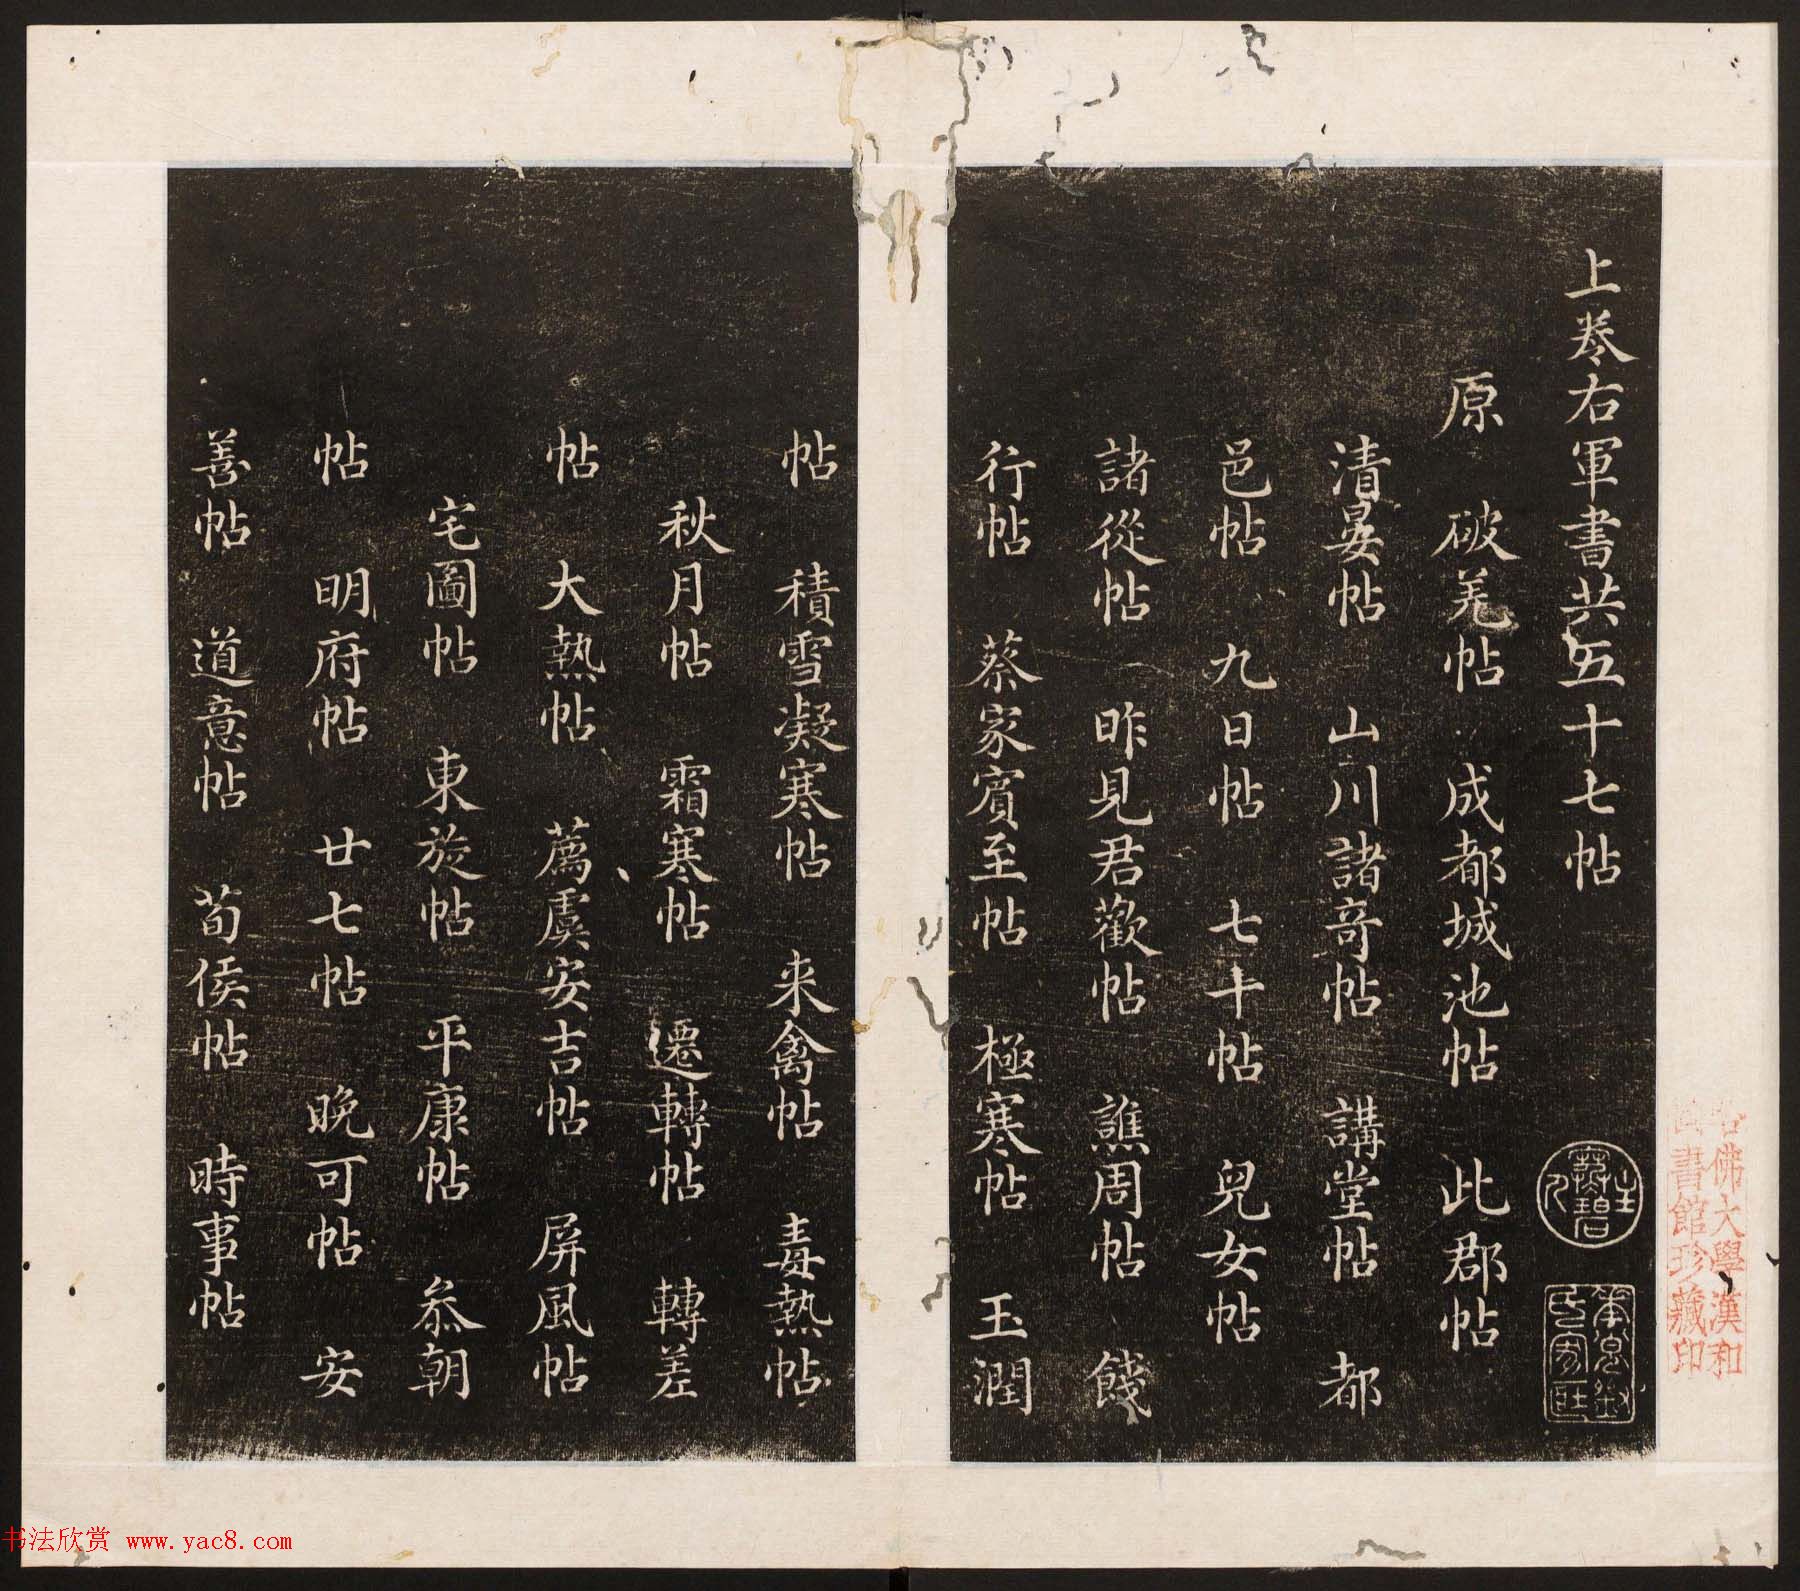 上卷右軍書共五十七帖
原 破羌帖 成都城池帖 此郡帖
清晏帖 山川諸奇帖 講堂帖 都
邑帖 九日帖 七十帖 兒女帖
諸從帖 昨見君歡帖 譙周帖 餞
行帖 蔡家賓至帖 極寒帖 玉潤
帖 積雪凝寒帖 来禽帖 毒熱帖
秋月帖 霜寒帖 遷轉帖 轉差
帖 大熱帖 薦虞安吉帖 屏風帖
宅圖帖 東旋帖 平康帖 叅朝
帖 明府帖 廿七帖 晚可帖 安
善帖 道意帖 荀侯帖 時事帖
佛大學漢和
書館珍藏印
书法欣赏 www.yac8.com